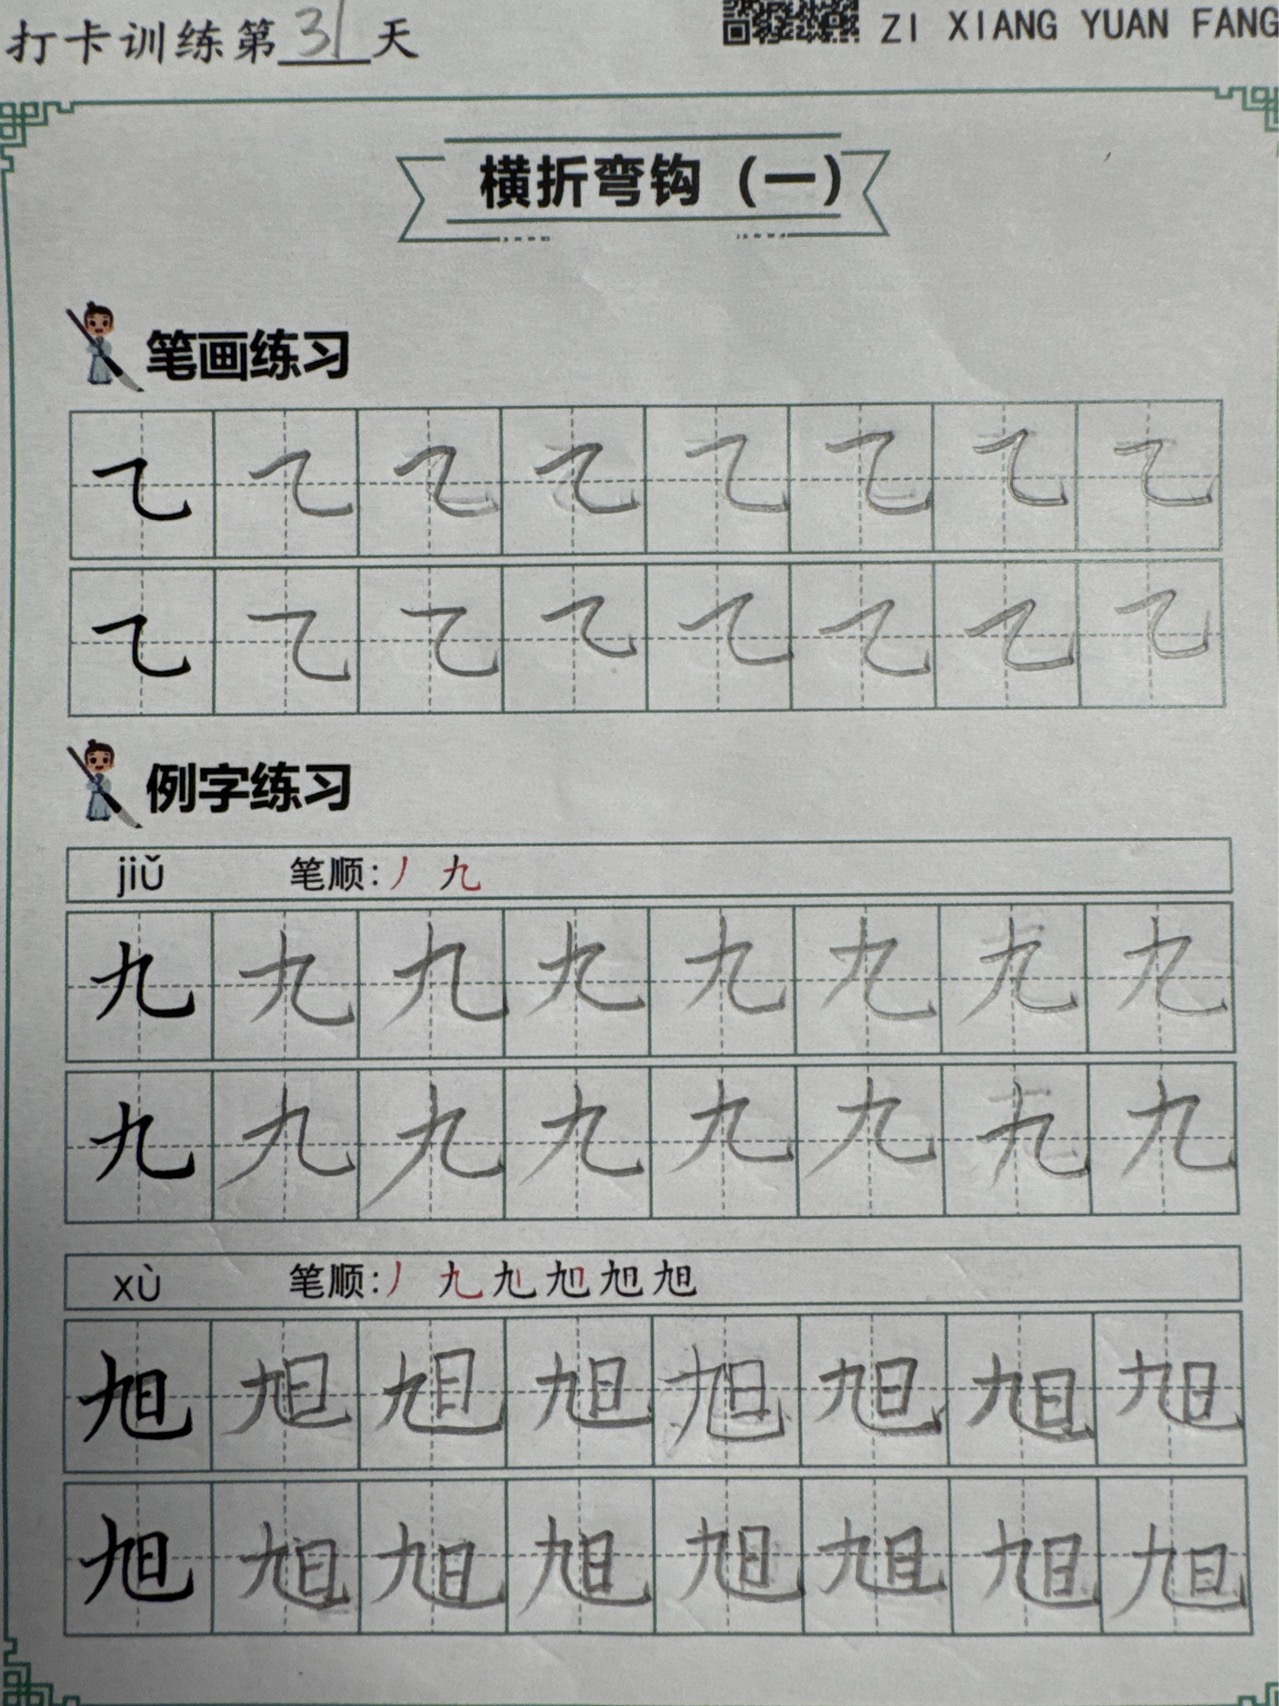 打卡训练第31天
ZI XIANG YUAN FANG
横折弯钩（一）
笔画练习
乙 乙 乙 乙 乙 乙 乙 乙
乙 乙 乙 乙 乙 乙 乙 乙
例字练习
jiǔ 笔顺：丿 九
九 九 九 九 九 九 九 九
九 九 九 九 九 九 九 九
xù 笔顺：丿 九 旭 旭 旭 旭
旭 旭 旭 旭 旭 旭 旭 旭
旭 旭 旭 旭 旭 旭 旭 旭